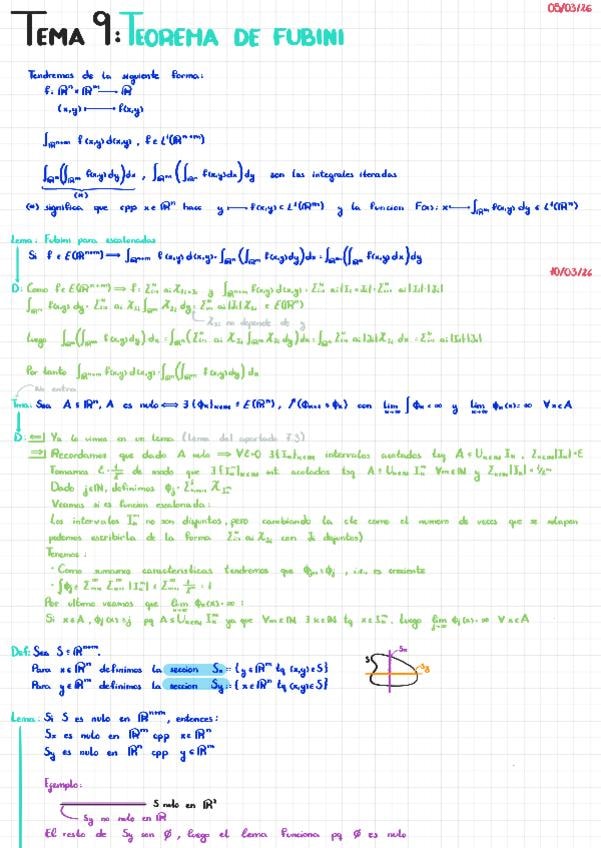 05/03/26
TEMA 9: TEOREMA DE FUBINI
Tendremos de la siguiente forma:
f: ℝⁿ × ℝᵐ ⟶ ℝ
(x,y) ⟼ f(x,y)
∫_{ℝⁿ⁺ᵐ} f(x,y) d(x,y) , f ∈ L¹(ℝⁿ⁺ᵐ)
∫_{ℝⁿ}(∫_{ℝᵐ} f(x,y) dy) dx , ∫_{ℝᵐ}(∫_{ℝⁿ} f(x,y) dx) dy son las integrales iteradas
(*)
(*) significa que cpp x∈ℝⁿ hace y ⟼ f(x,y) ∈ L¹(ℝᵐ) y la funcion F(x): x ⟼ ∫_{ℝᵐ} f(x,y) dy ∈ L¹(ℝⁿ)
Lema: Fubini para escalonadas
Si f ∈ E(ℝⁿ⁺ᵐ) ⟹ ∫_{ℝⁿ⁺ᵐ} f(x,y) d(x,y) = ∫_{ℝⁿ}(∫_{ℝᵐ} f(x,y) dy) dx = ∫_{ℝᵐ}(∫_{ℝⁿ} f(x,y) dx) dy
10/03/26
D: Como f ∈ E(ℝⁿ⁺ᵐ) ⟹
no depende de y
Luego
Por tanto ∫_{ℝⁿ⁺ᵐ} f(x,y) d(x,y) = ∫_{ℝⁿ}(∫_{ℝᵐ} f(x,y) dy) dx
No entra
Tma: Sea A ⊆ ℝⁿ, A es nulo ⟺ ∃ {ϕₖ}ₖ∈ℕ ⊆ E(ℝⁿ), ↗ (ϕₖ₊₁ ≥ ϕₖ) con lim ∫ ϕₖ < ∞ y lim ϕₖ(x) = ∞ ∀x∈A
D: ⟸| Ya lo vimos en un lema (lema del apartado 7.3)
⟹| Recordamos que dado A nulo ⟹ ∀ε>0 ∃ intervalos acotados tq
Tomamos de modo que ∃ int. acotados tq ∀m∈ℕ y
Dado j∈ℕ, definimos
Veamos si es funcion escalonada:
Los intervalos no son disjuntos, pero cambiando la cte como el numero de veces que se solapen
podemos escribirla de la forma con disjuntos)
Tenemos:
· Como sumamos caracteristicas tendremos que ϕⱼ₊₁ ≥ ϕⱼ , i.e., es creciente
Por ultimo veamos que lim ϕₖ(x) = ∞ :
Si x∈A , ϕⱼ(x) ≥ j pq ya que ∀m∈ℕ ∃ k∈ℕ tq Luego lim ϕⱼ(x) = ∞ ∀x∈A
Def: Sea S ⊆ ℝⁿ⁺ᵐ.
Para x∈ℝⁿ definimos la seccion Sₓ := {y∈ℝᵐ tq (x,y)∈S}
Para y∈ℝᵐ definimos la seccion S_y := {x∈ℝⁿ tq (x,y)∈S}
S
Sₓ
S_y
Lema: Si S es nulo en ℝⁿ⁺ᵐ, entonces:
Sₓ es nulo en ℝᵐ cpp x∈ℝⁿ
S_y es nulo en ℝⁿ cpp y∈ℝᵐ
Ejemplo:
S nulo en ℝ²
S_y no nulo en ℝ
El resto de S_y son Ø, luego el lema funciona pq Ø es nulo